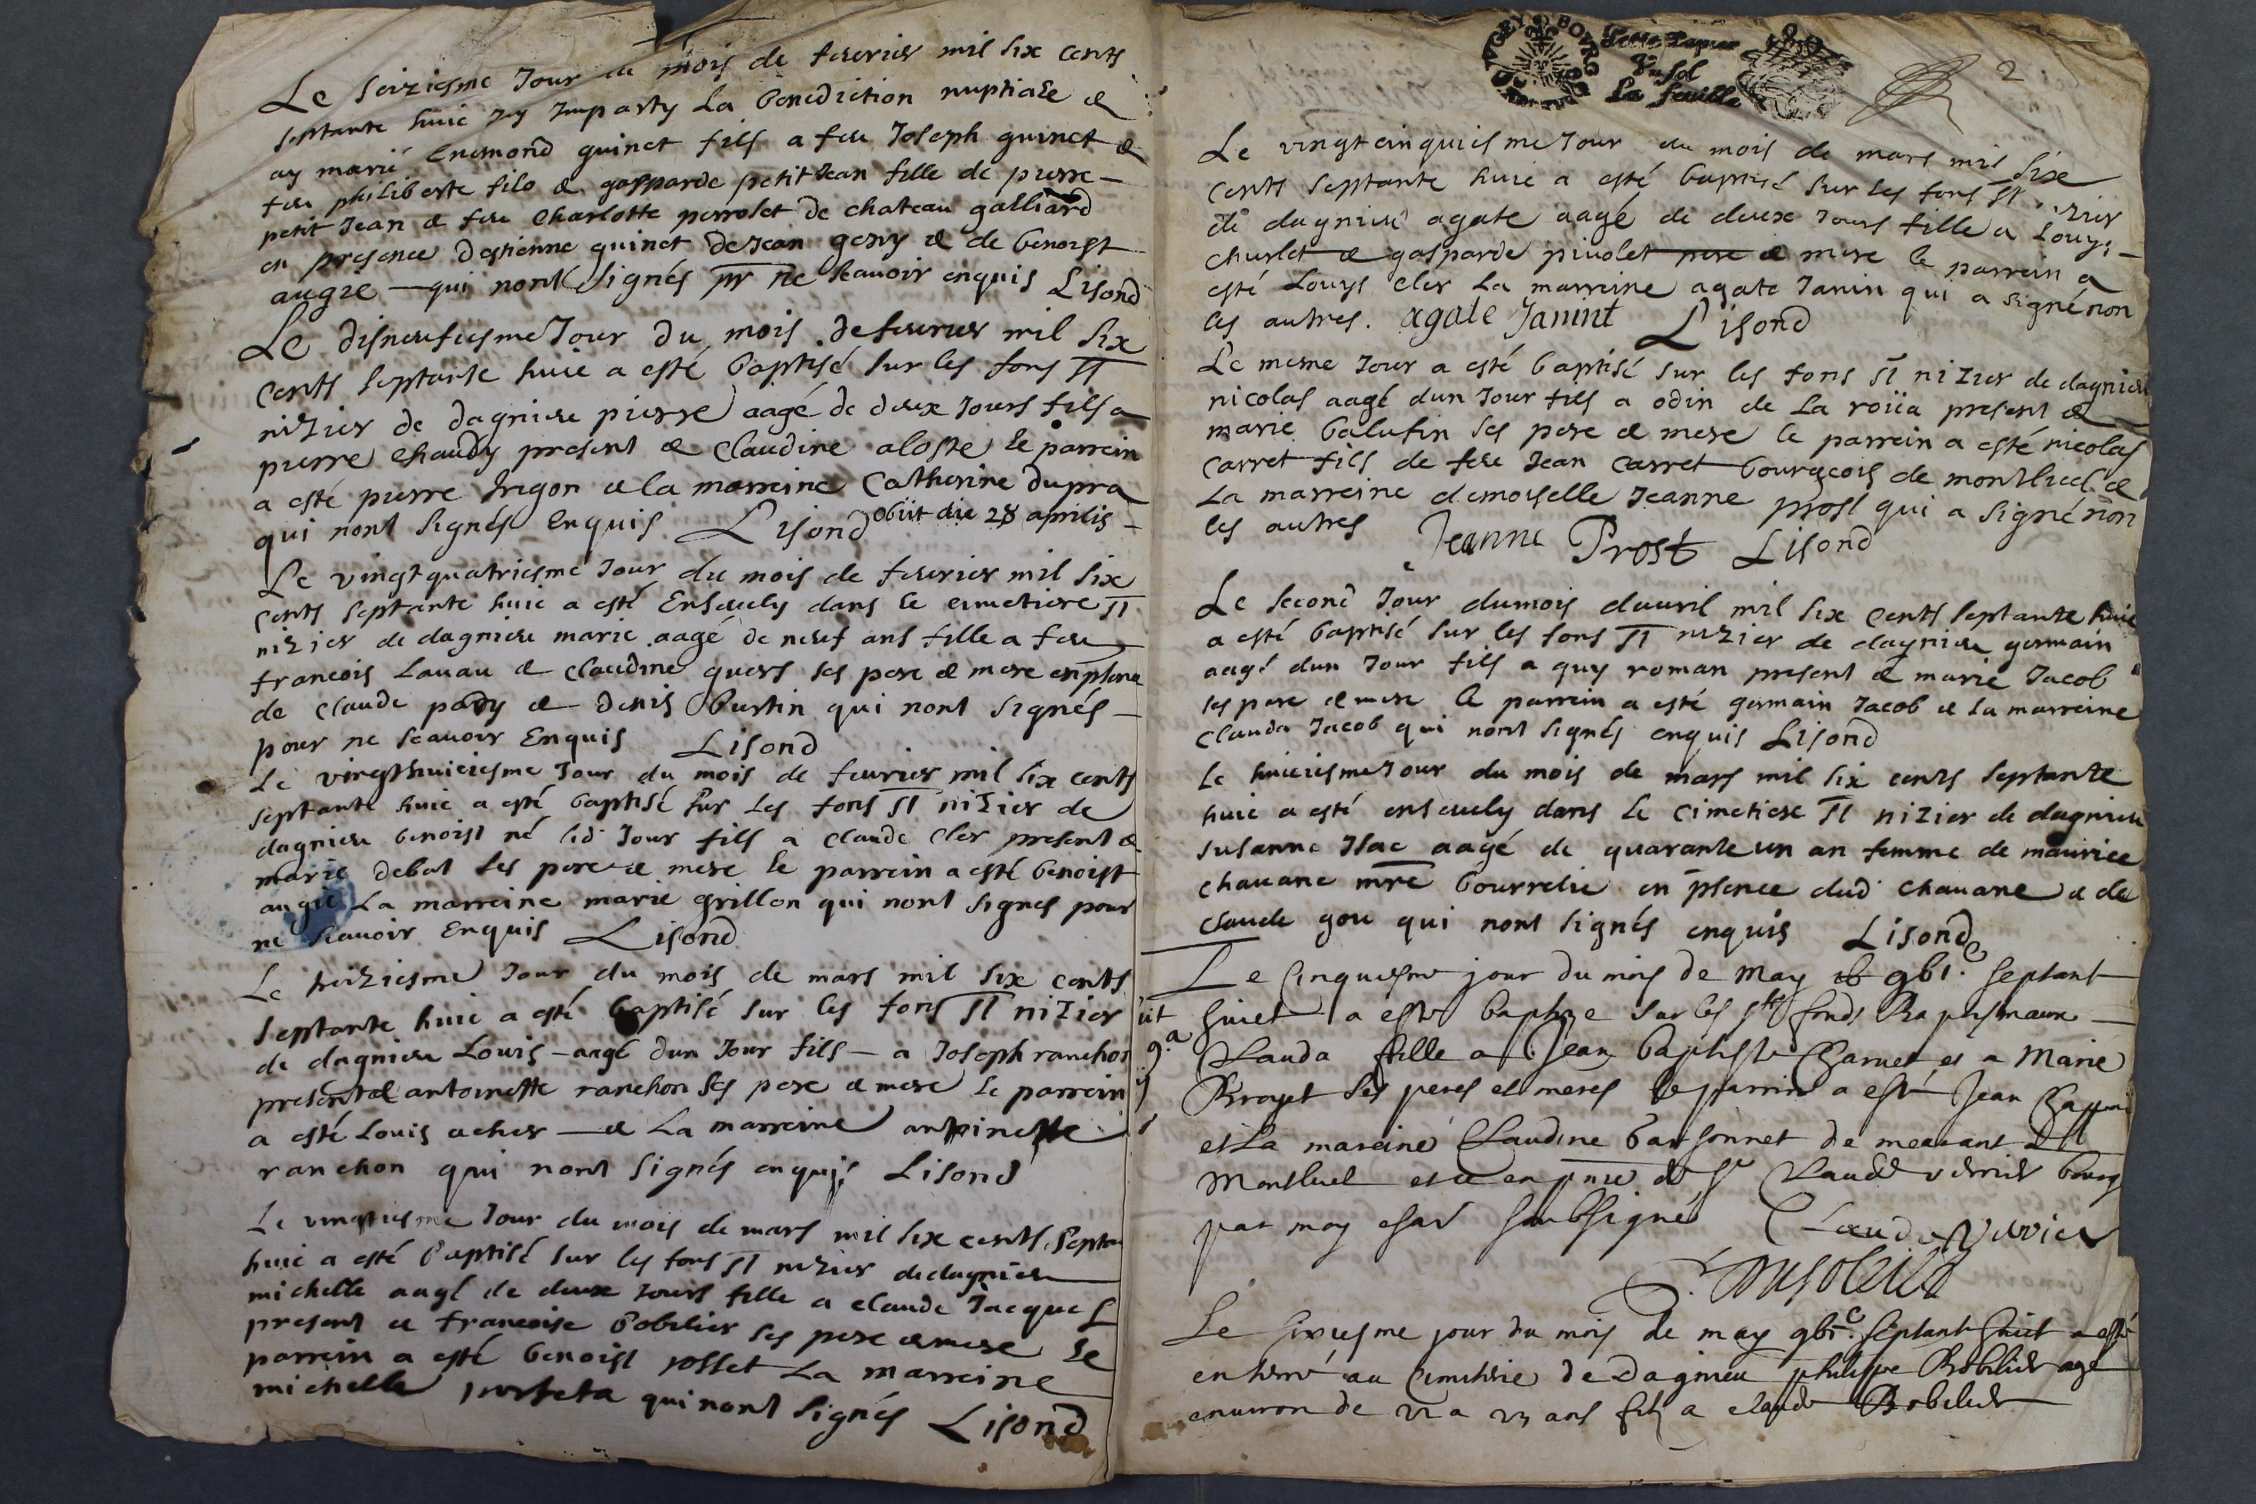 Le seiziesme Jour du mois de feurier mil six cents
septante huic Jay Imparty La benediction nuptiale &
ay marié Enemond guinet fils a feu Joseph guinet &
feu philiberte filo & gasparde petit Jean fille de pierre
petit Jean & feu Charlotte perrolet de chateau galliard
en presence destienne guinet de Jean geny & de benoist
augie qui nont signés pr ne scauoir enquis Lisond
Le disneufuiesme Jour du mois de feurier mil six
cents septante huic a esté baptisé sur les fons st
nizier de dagnieu pierre aagé de deux Jours fils a
pierre chaudy present & Claudine aloste le parrein
a esté pierre frigon & la marreine Catherine dupra
qui nont signés enquis Lisond obiit die 28 aprilis
Le vingtquatriesme Jour du mois de feurier mil six
cents septante huic a esté Enseuely dans le cimetiere st
nizier de dagnieu marie aagé de neuf ans fille a feu
francois Lauau & claudine quers ses pere & mere en pñce
de claude pady & denis burtin qui nont signés
pour ne scauoir Enquis Lisond
Le vingthuiciesme Jour du mois de feurier mil six cents
septante huic a esté baptisé sur les fons st nizier de
dagnieu benoist né led Jour fils a claude cler present &
marie debat ses pere & mere le parrein a esté benoist
augie La marreine marie grillon qui nont signes pour
ne scauoir Enquis Lisond
Le treiziesme Jour du mois de mars mil six cents
septante huic a esté baptisé sur les fons st nizier
de dagnieu Louis aagé dun Jour fils a Joseph ranchon
present & antoinette ranchon ses pere & mere le parrein
a esté Louis acher & La marreine antoinette
ranchon qui nont signés enquis Lisond
Le vingtiesme Jour du mois de mars mil six cents septa
huic a esté baptisé sur les fons st nizier de dagnieu
michelle aagé de deux Jours fille a claude Jacques
present & francoise bobilier ses pere & mere le
parrein a esté benoist josset La marreine
michelle perfeta qui nont signés Lisond
BVGEY BOVRG
Petit Papier
Vn sol
La feuille
2
Le vingtcinquiesme Jour du mois de mars mil six
cents septante huic a esté baptisé sur les fons st nizier
de dagnieu agate aagé de deux Jours fille a Louys
churlet & gasparde piuolet pere & mere le parrein a
esté Louys cler La marreine agate Janin qui a signé non
les autres. agate Janint Lisond
Le mesme Jour a esté baptisé sur les fons st nizier de dagnieu
nicolas aagé dun Jour fils a odin de La roiia present &
marie balufin ses pere & mere le parrein a esté nicolas
carret fils de feu Jean carret bourgeois de montluel &
La marreine demoiselle Jeanne prost qui a signé non
les autres Jeanne Prost Lisond
Le second Jour du mois dauril mil six cents septante huic
a esté baptisé sur les fons st nizier de dagnieu germain
aagé dun Jour fils a guy roman present & marie Jacob
ses pere & mere le parrein a esté germain Jacob & la marreine
clauda Jacob qui nont signés enquis Lisond
Le huiciesme Jour du mois de mars mil six cents septante
huic a esté enseuely dans le cimetiere st nizier de dagnieu
susanne Isac aagé de quarante un an femme de maurice
chauane mre bourrelie en pñsence dud chauane & de
claude gou qui nont signés enquis Lisond
Le Cinquiesme jour du mois de may gbic septant
huict a este baptizee sur les sts fonds Baptismaux
Clauda fille a Jean baptiste Charuet et a Marie
Broyet ses peres et meres le parrin a esté Jean
et La mareine Claudine barsonnet de
Montluel et ce en pnce de sr Claude verrier bourg
par moy soubsigné Claude Verrier
Le sixiesme jour du mois de may gbic septant huict a esté
enterré au Cimetiere de Dagnieu philippe Bobilier agé
enuiron de ans filz a claude Bobilier